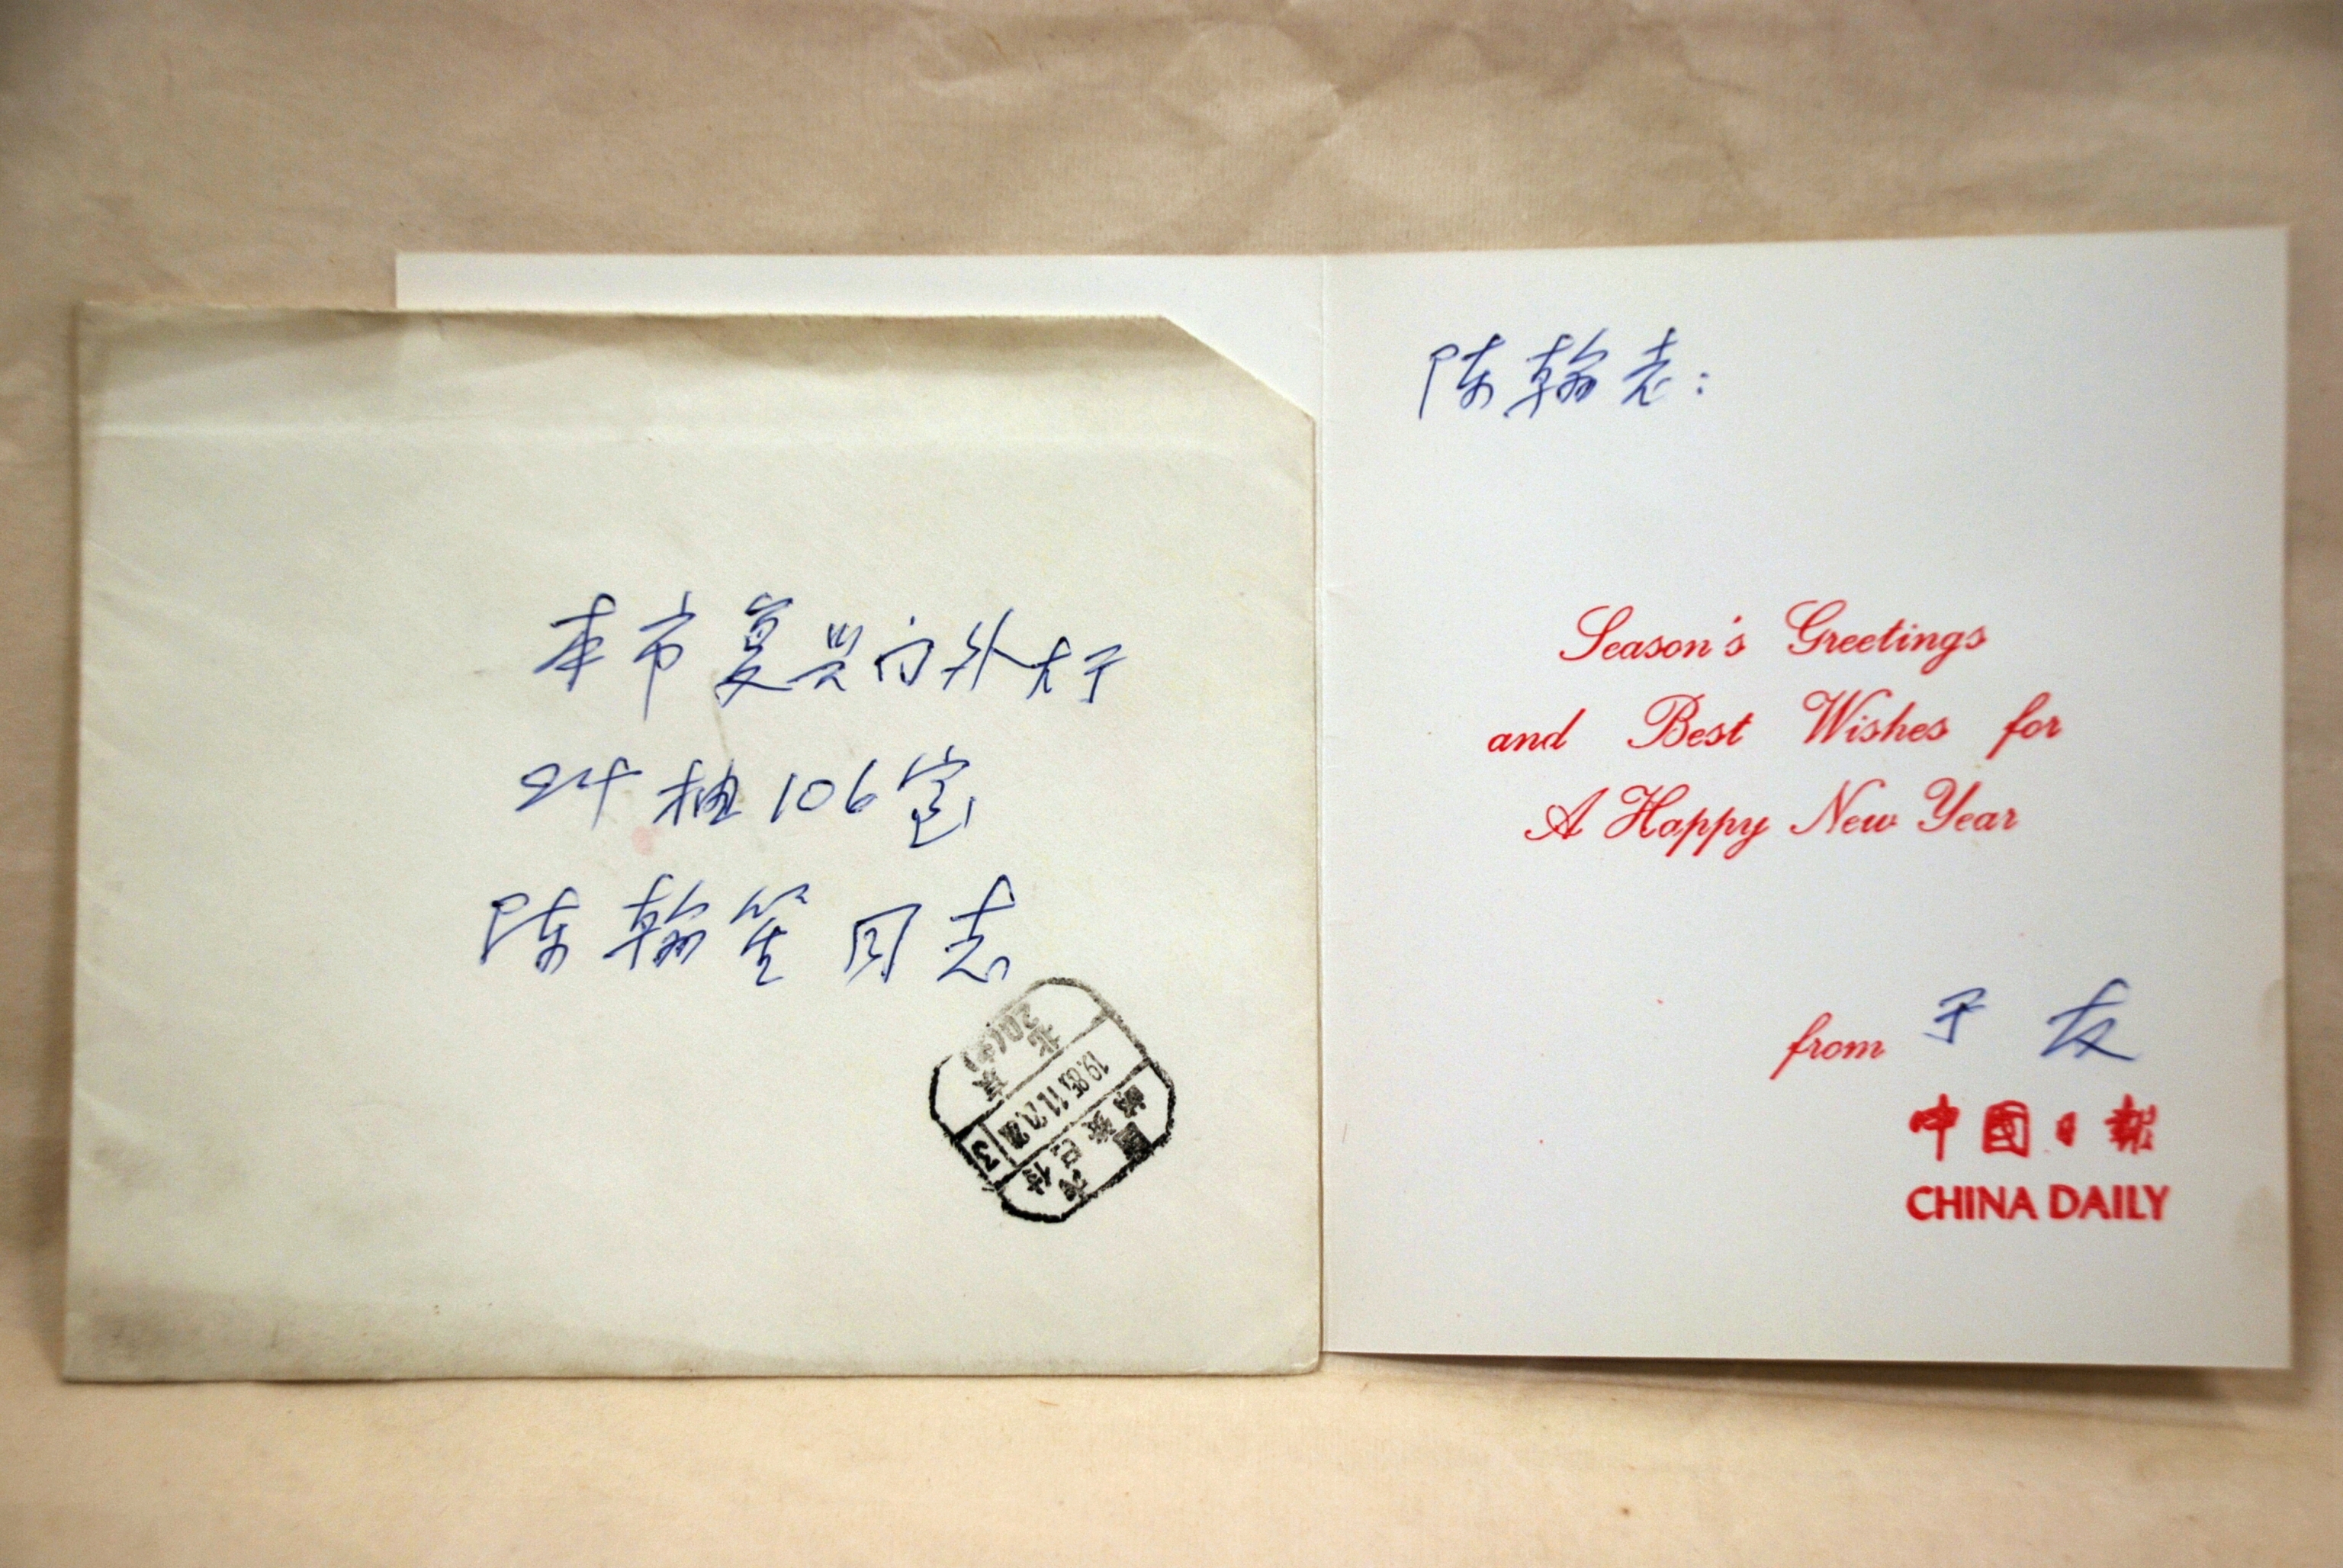 本市复兴门外大于
24 楼 106 室
陈翰笙同志
北京
20(支)
3
国内
邮资已付
陈翰老:
Season's Greetings
and Best Wishes for
A Happy New Year
from 于友
中國日報
CHINA DAILY